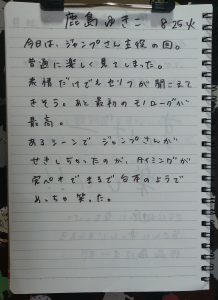 鹿島ゆきこ 8.25火
今日は、ジャンプさん主役の回。
普通に楽しく見てしまった。
表情だけでもセリフが聞こえて
きそう。あと最初のモノローグが
最高。
あるシーンで ジャンプさんが
せきしちゃったのが、タイミングが
完ペキでまるで台本のようで
めっちゃ笑った。